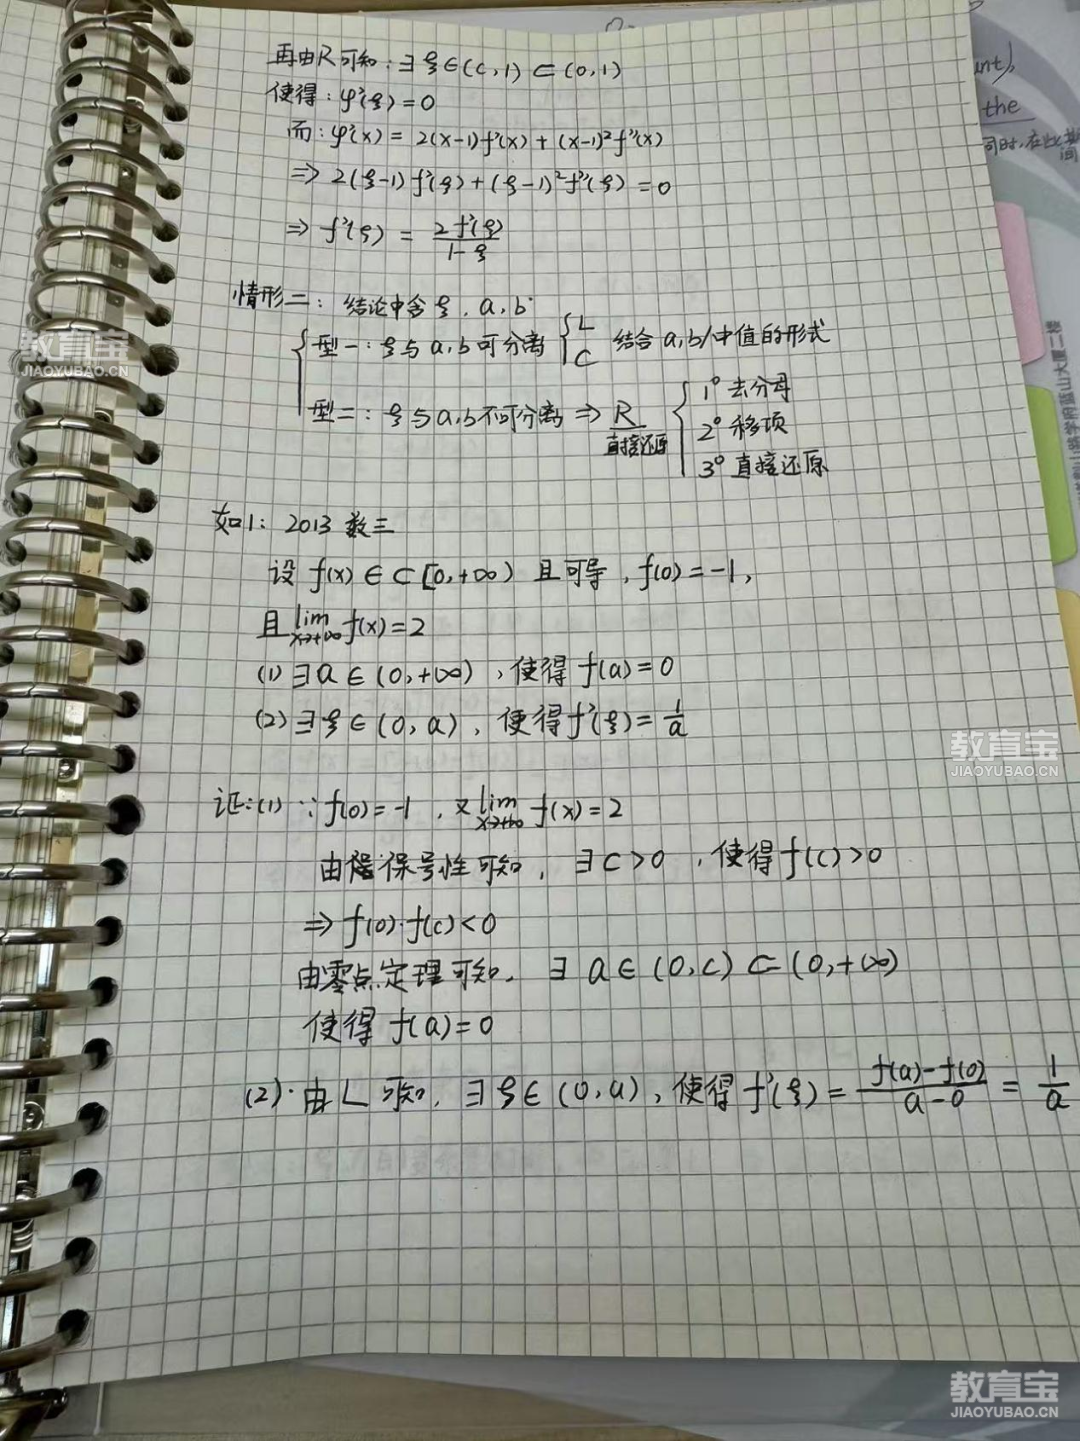 再由R可知：∃ξ∈(c,1)⊂(0,1)
使得：φ'(ξ)=0
而：φ'(x)=2(x-1)f'(x)+(x-1)²f''(x)
⇒2(ξ-1)f'(ξ)+(ξ-1)²f''(ξ)=0
⇒f''(ξ)=2f'(ξ)/1-ξ
情形二：结论中含ξ，a，b
型一：ξ与a,b可分离 { L C 结合a,b/中值的形式
型二：ξ与a,b不可分离⇒R 直接还原
1° 去分母
2° 移项
3° 直接还原
如1：2013 数三
设f(x)∈C[0,+∞)且可导，f(0)=-1，
且lim x→+∞ f(x)=2
(1)∃a∈(0,+∞)，使得f(a)=0
(2)∃ξ∈(0,a)，使得f'(ξ)=1/a
证：(1)∵f(0)=-1，又lim x→+∞ f(x)=2
由保号性可知，∃c>0，使得f(c)>0
⇒f(0)·f(c)<0
由零点定理可知，∃a∈(0,c)⊂(0,+∞)
使得f(a)=0
(2)·由L可知，∃ξ∈(0,a)，使得f'(ξ)=f(a)-f(0)/a-0=1/a
unt),
the
同时,在此期
间
教育宝
JIAOYUBAO.CN
教育宝
JIAOYUBAO.CN
教育宝
JIAOYUBAO.CN